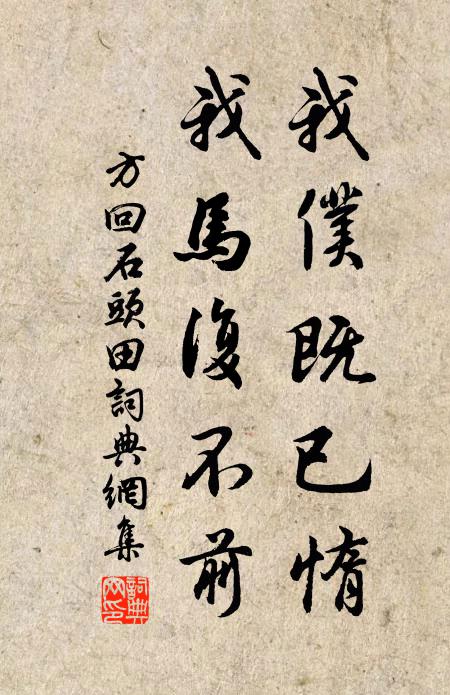 我僕既已惰
我馬復不前
方回石頭田詞典網集
詞典網印